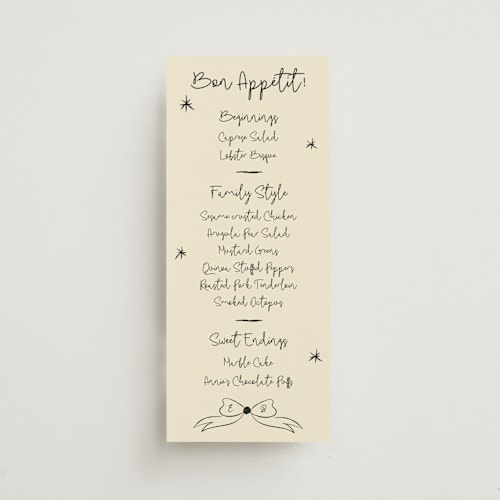 Bon Appétit!
Beginnings
Caprese Salad
Lobster Bisque
Family Style
Sesame crusted Chicken
Arugula Pear Salad
Mustard Greens
Quinoa Stuffed Peppers
Roasted Pork Tenderloin
Smoked Octopus
Sweet Endings
Marble Cake
Annie's Chocolate Puffs
E B